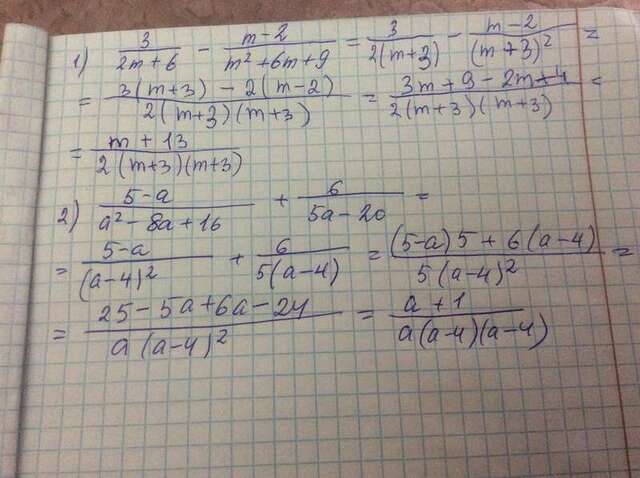 1) 3/(2m+6) - (m-2)/(m²+6m+9) = 3/(2(m+3)) - (m-2)/(m+3)² =
= (3(m+3) - 2(m-2))/(2(m+3)(m+3)) = (3m+9-2m+4)/(2(m+3)(m+3)) =
= (m+13)/(2(m+3)(m+3))
2) (5-a)/(a²-8a+16) + 6/(5a-20) =
= (5-a)/(a-4)² + 6/(5(a-4)) = ((5-a)5+6(a-4))/(5(a-4)²) =
= (25-5a+6a-24)/(a(a-4)²) = (a+1)/(a(a-4)(a-4))